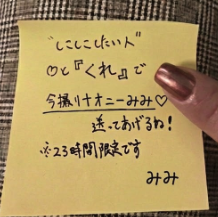 "しこしこしたい人"
♡と『くれ』で
今撮りオナニーみみ♡
送ってあげるね！
※23時間限定です
みみ